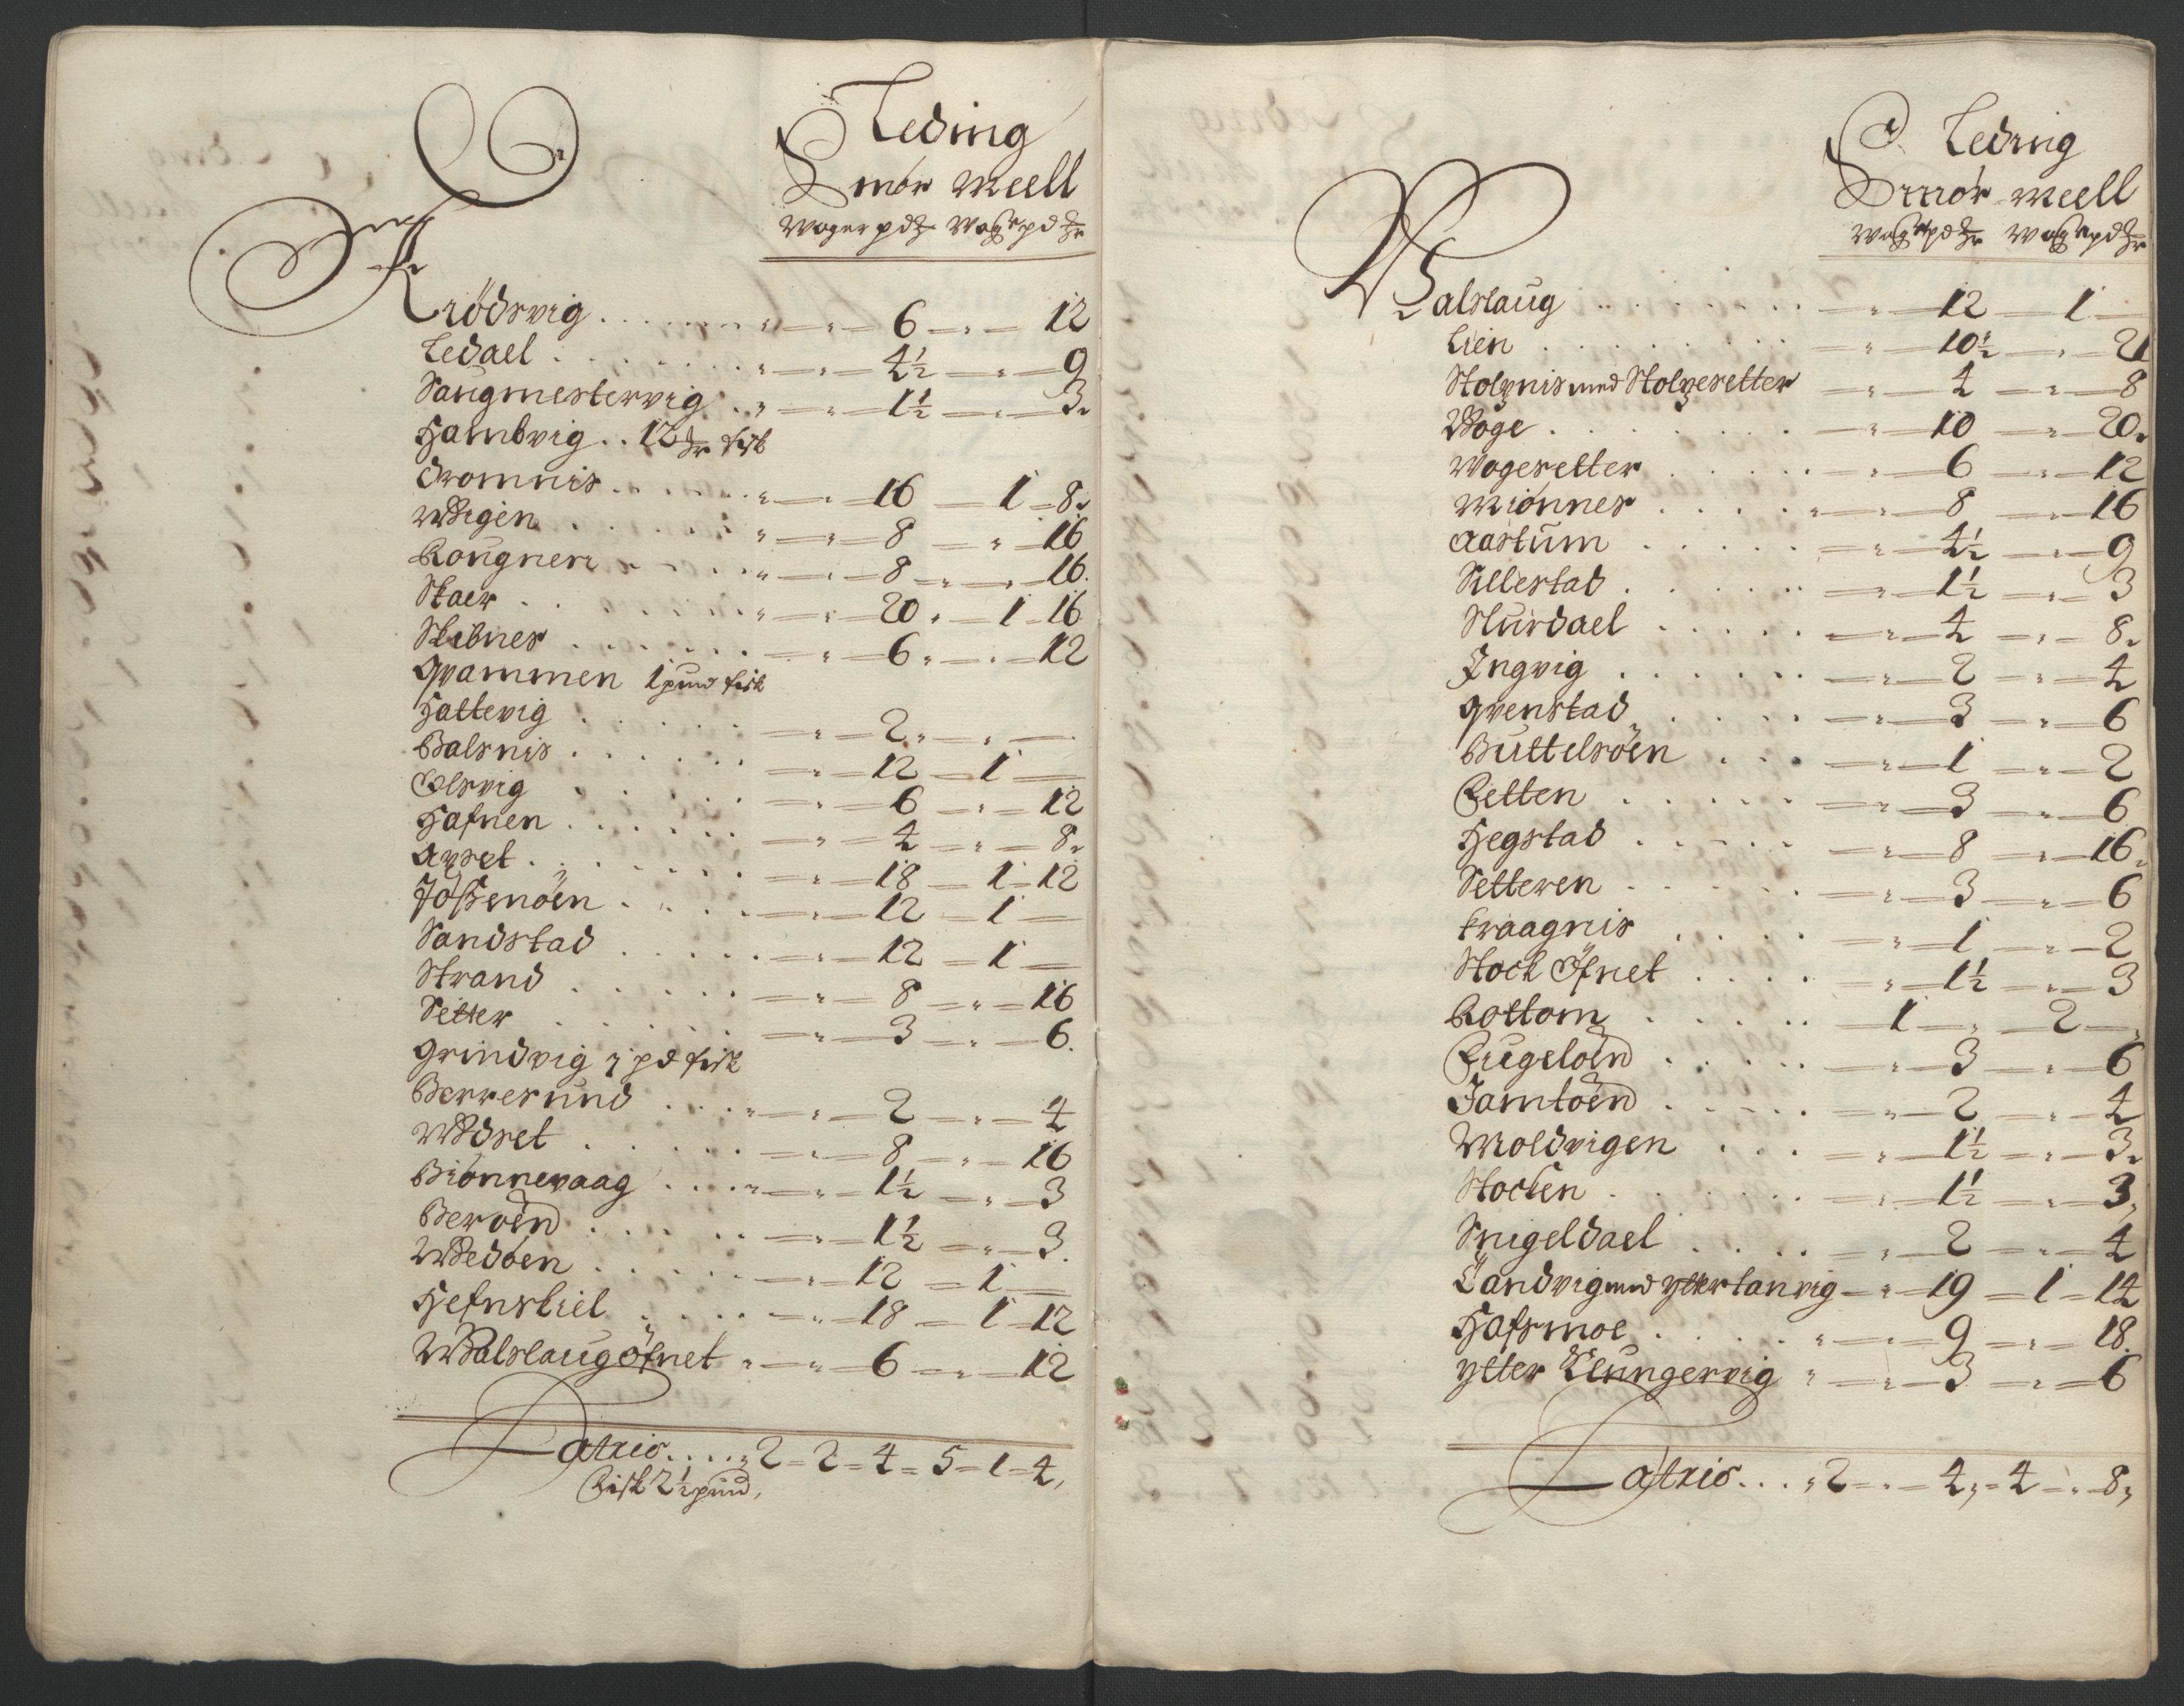 Leding
Smör Meell
Woger pd ℔r Wogr pd ℔r
Kiödsvig . . . . . . . „ — „ — 6 — „ — 12
Ledael . . . . . . . „ — „ — 4½ — „ — 9
Saugmestervig . . „ — „ — 1½ — „ — 3„
Hambvig . . 12 ℔r fisk
Dromnis . . . . . . „ — „ — 16 — 1 — 8„
Wiigen . . . . . . „ — „ — 8 — „ — 16
Rougnen . . . . . „ — „ — 8 „ — „ — 16.
Skaer . . . . . . . „ — „ — 20 „ — 1 — 16
Skibnes . . . . . . — „ — 6 „ — „ — 12
Qvammen 1 pund fisk
Hattevig . . . . . — „ — 2 „ — „ —
Balsnis . . . . . . — „ — 12 — 1 —
Olsvig . . . . . . — „ — 6 — „ — 12
Hafnen . . . . . . — „ — 4 — „ — 8„
Aunset . . . . . . — „ — 18 — 1 — 12
Jössenöen . . . . — „ — 12 — 1 —
Sandstad . . . . . — „ — 12 — 1 —
Strand . . . . . . — „ — 8 — „ — 16
Setter . . . . . . — „ — 3 — „ — 6.
Grindvig 1 pd fisk
Berresund . . . . „ — „ — 2 — „ — 4
Wedset . . . . . . — „ — 8 — „ — 16
Biönnevaag . . . . „ — „ — 1½ — „ — 3
Beröen . . . . . . — „ — 1½ — „ — 3.
Wedöen . . . . . — „ — 12 — 1 —
Hefnskiel . . . . . — „ — 18 — 1 — 12
Walslaugöfnet „ — „ — 6 — „ — 12
Latris . . . . „ 2 — 2 — 4 — 5 — 1 — 4,
Fisk 2½ pund,
Leding
Smör Meell
Wogr pd ℔r Wogr pd ℔r
Walslaug . . . . . . . — „ — 12 — 1 —
Lien . . . . . . . . . — „ — 10½ — „ — 21
Stolpnis med Stolpesetter — „ — 4 — „ — 8
Woge . . . . . . . — „ — 10 — „ — 20„
Wogesetter . . . . . — „ — 6 — „ — 12
Miönnes . . . . . „ — „ — 8 — „ — 16
Aastum . . . . . — „ — 4½ — „ — 9
Sillestad . . . . . — „ — 1½ — „ — 3
Sturdael . . . . . — „ — 4 — „ — 8„
Ingvig . . . . . . — „ — 2 — „ — 4
Qvenstad . . . . — „ — 3 — „ — 6
Buttelsöen . . . — „ — 1 — „ — 2
Fetten . . . . . — „ — 3 — „ — 6
Hegstad . . . . . — „ — 8 — „ — 16„
Setteren . . . . . — „ — 3 — „ — 6
Kraagnis . . . . — „ — 1 — „ — 2
Stock Öfnet . . . . — „ — 1½ — „ — 3
Rottom . . . . . — 1 — „ — 2 — „
Fugelöen . . . . . — „ — 3 — „ — 6
Jamtöen . . . . . — „ — 2 — „ — 4
Moldvigen . . . — „ — 1½ — „ — 3„
Stocken . . . . . — „ — 1½ — „ — 3,
Snigeldael . . . . — „ — 2 — „ — 4
Tandvig med yttertanvig — „ — 19 — 1 — 14
Hafsmoe . . . . . „ — „ — 9 — „ — 18.
ytter Leungervig „ — „ — 3 — „ — 6
Latris . . . „ 2 — „ — 4 „ — 4 — „ — 8„